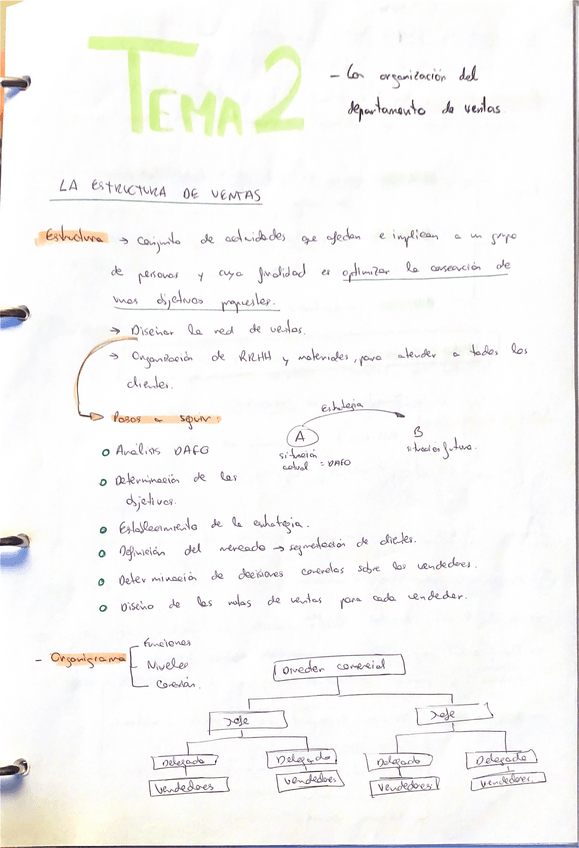 TEMA 2
- La organización del
departamento de ventas.
LA ESTRUCTURA DE VENTAS
Estructura → Conjunto de actividades que afectan e implican a un grupo
de personas y cuya finalidad es optimizar la consecución de
unos objetivos propuestos.
→ Diseñar la red de ventas.
→ Organización de RRHH y materiales, para atender a todos los
clientes.
Pasos a seguir:
Estrategia
A
B
situación
actual = DAFO
situación futura.
o Análisis DAFO
o Determinación de los
objetivos.
o Establecimiento de la estrategia.
o Definición del mercado → segmentación de clientes.
o Determinación de decisiones concretas sobre los vendedores.
o Diseño de las rutas de ventas para cada vendedor.
- Organigrama
Funciones
Niveles
Conexión.
Director comercial
Jefe
Jefe
Delegado
Delegado
Delegado
Delegado
Vendedores
Vendedores
Vendedores
Vendedores